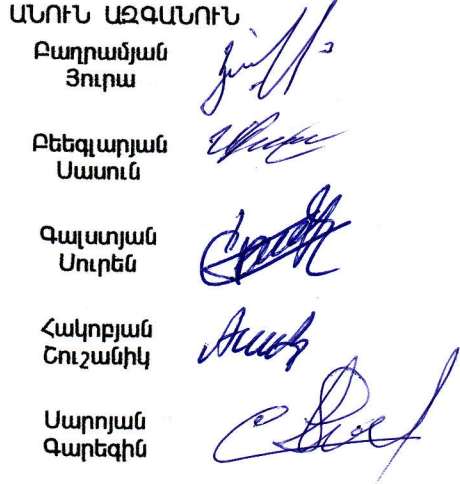 ԱՆՈՒՆ ԱԶԳԱՆՈՒՆ
Բաղրամյան
Յուրա
Բեեգլարյան
Սասուն
Գալստյան
Սուրեն
Հակոբյան
Շուշանիկ
Սարոյան
Գարեգին